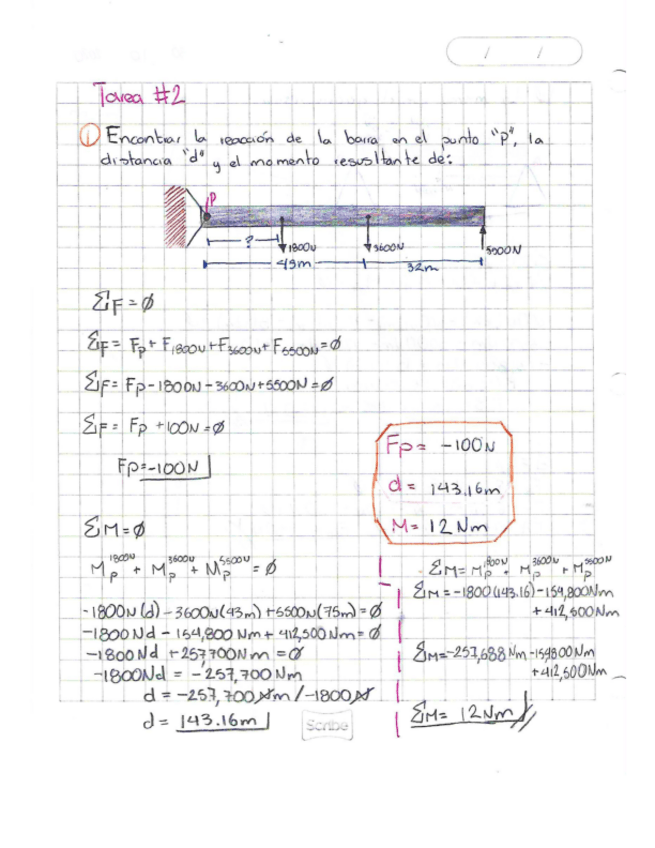 / /
Tarea #2
① Encontrar la reacción de la barra en el punto "P", la
distancia "d" y el momento resusltante de:
P
? 1800N 3600N 5500N
43m 32m
ΣF = ∅
ΣF = Fp + F1800N + F3600N + F5500N = ∅
ΣF = Fp - 1800N - 3600N + 5500N = ∅
ΣF = Fp + 100N = ∅
Fp = -100N
Fp = -100N
d = 143.16m
M = 12 Nm
ΣM = ∅
Mp^1800N + Mp^3600N + Mp^5500N = ∅
-1800N(d) - 3600N(43m) + 5500N(75m) = ∅
-1800 Nd - 154,800 Nm + 412,500 Nm = ∅
-1800 Nd + 257,700 Nm = ∅
-1800Nd = -257,700 Nm
d = -257,700 Nm / -1800 N
d = 143.16m
ΣM = Mp^1800N + Mp^3600N + Mp^5500N
ΣM = -1800(143.16) - 154,800Nm
+ 412,500Nm
ΣM = -257,688 Nm - 154800Nm
+ 412,500Nm
ΣM = 12Nm
Scribe